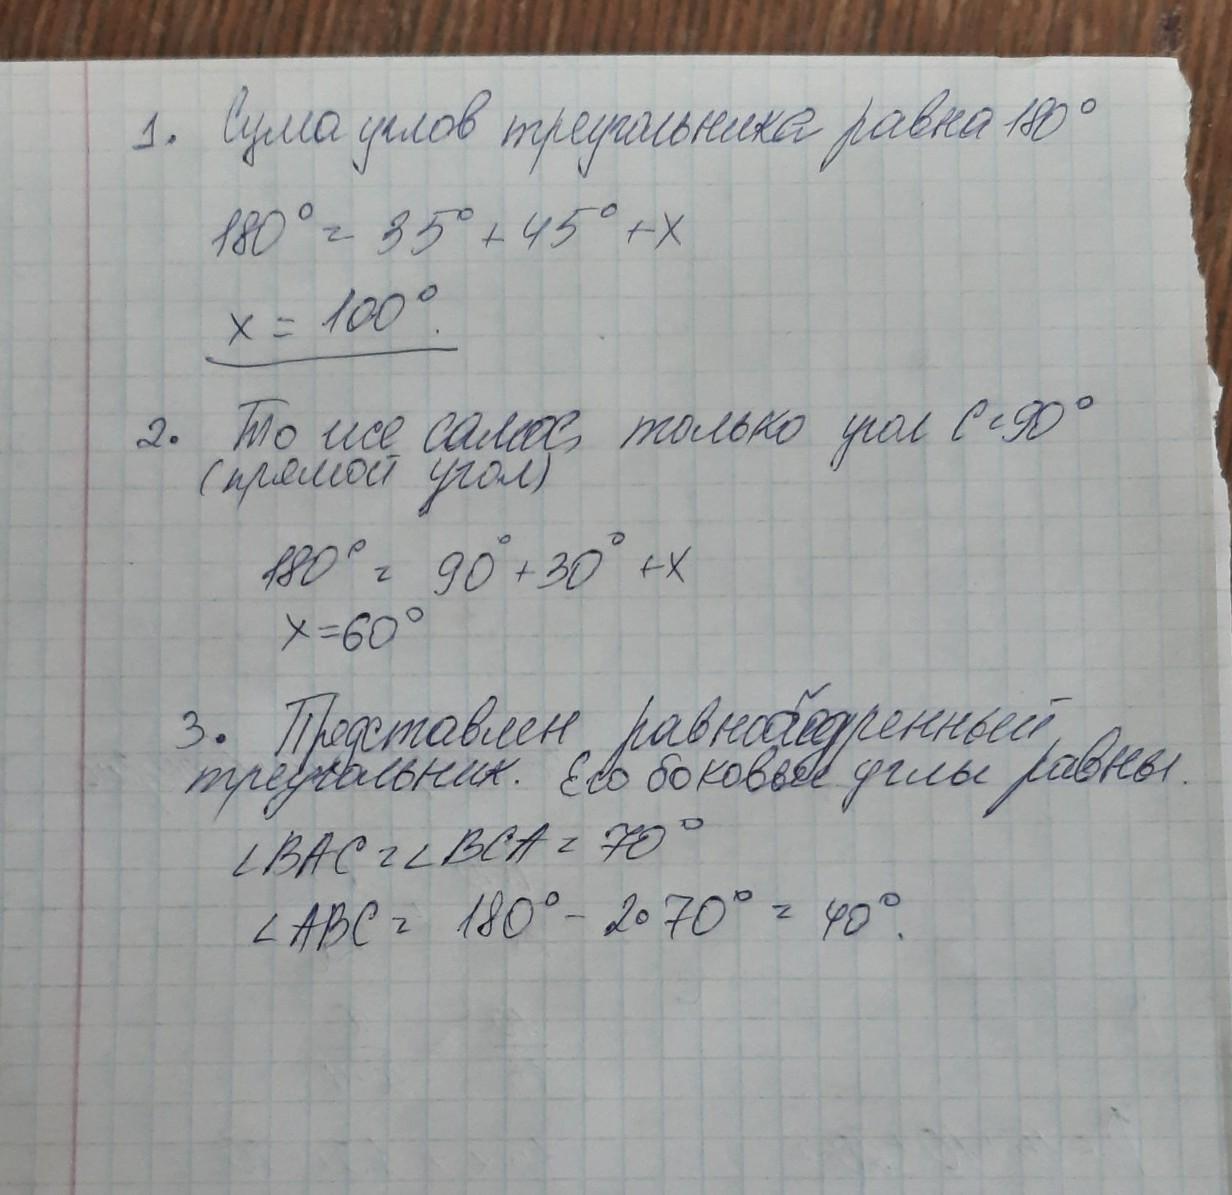 1. Сума углов треугольника равна 180°
180° = 35° + 45° + x
x = 100°.
2. То же самое, только угол C = 90°
(прямой угол)
180° = 90° + 30° + x
x = 60°
3. Представлен равнобедренный
треугольник. Его боковые углы равны.
∠BAC = ∠BCA = 70°
∠ABC = 180° - 2 · 70° = 40°.